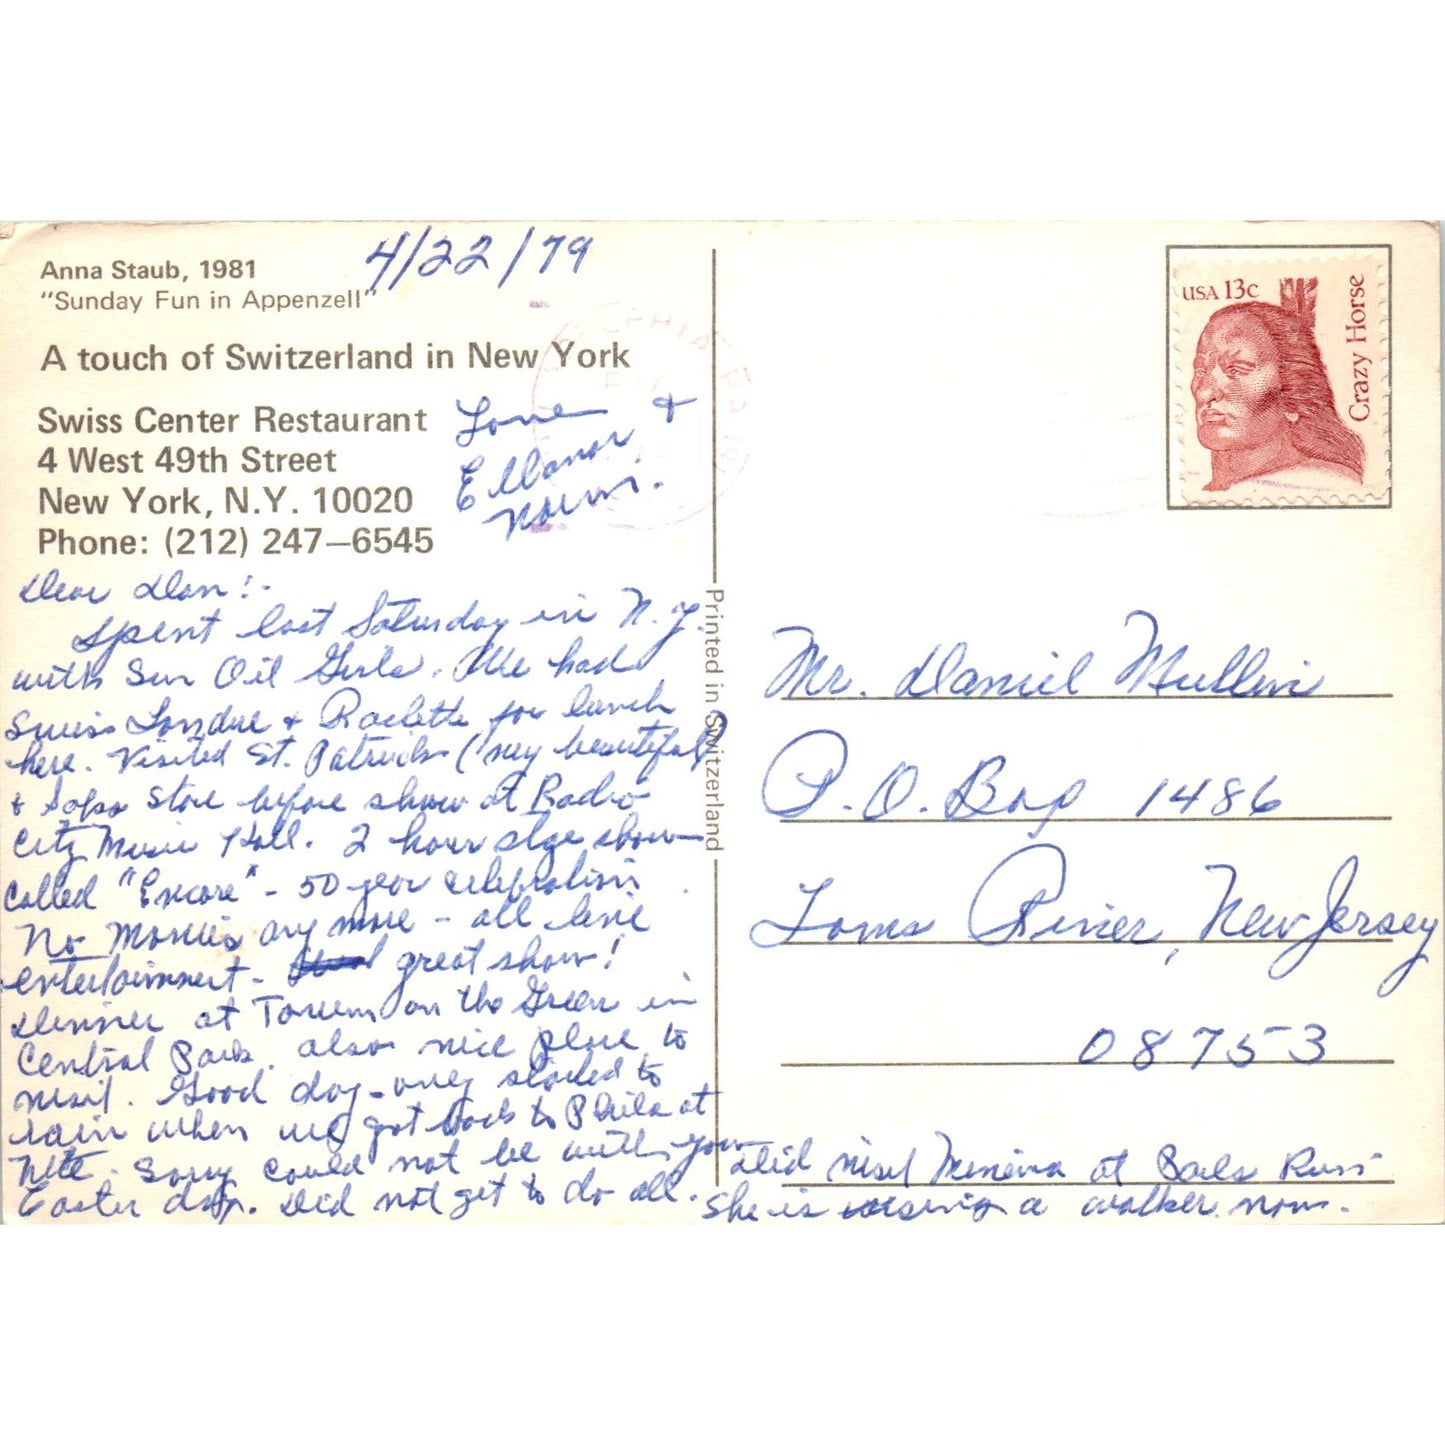 4/22/79
Anna Staub, 1981
"Sunday Fun in Appenzell"
A touch of Switzerland in New York
Swiss Center Restaurant
4 West 49th Street
New York, N.Y. 10020
Phone: (212) 247-6545
Love &
Ellanor
Norm.
Dear Dan!-
Spent last Saturday in N.Y.
with Sun Oil Girls. We had
Swiss Fondue & Raclette for lunch
here. Visited St. Patricks (very beautiful)
& Saks Store before show at Radio
City Music Hall. 2 hour stge show
called "Encore" - 50 year celebration
No Movies any more - all live
entertainment - great show!
Dinner at Tavern on the Green in
Central Park. also nice place to
visit. Good day - only started to
rain when we got back to Phila at
nite. Sorry could not be with you
Easter day. Did not get to do all.
Did visit Minerva at
She is using a walker now.
Printed in Switzerland
USA 13c
Crazy Horse
Mr. Daniel Mullin
P.O. Box 1486
Toms River, New Jersey
08753